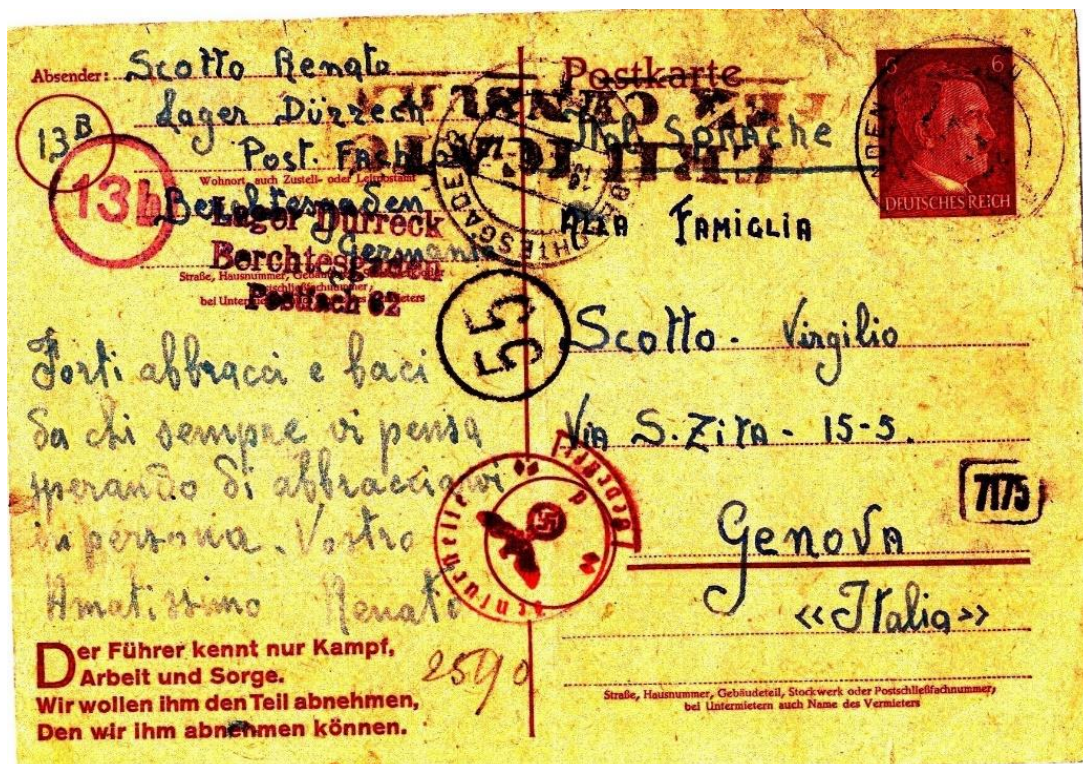 Absender: Scotto Renato
Lager Dürrech
Post. Fach
Wohnort, auch Zustell- oder Leitpostamt
Berchtesgaden
Germania
13B
13b
Lager Dürreck
Berchtesgaden
Postfach 62
Straße, Hausnummer, Gebäudeteil, Stockwerk oder Postschließfachnummer;
bei Untermietern auch Name des Vermieters
Forti abbracci e baci
da chi sempre vi pensa
sperando di abbracciarvi
in persona. Vostro
Amatissimo Renato
Der Führer kennt nur Kampf,
Arbeit und Sorge.
Wir wollen ihm den Teil abnehmen,
Den wir ihm abnehmen können.
2590
Postkarte
BERCHTESGADEN
6 6
DEUTSCHES REICH
Ital. Sprache
Alla Famiglia
55
Scotto - Virgilio
Via S. Zita - 15-5.
7175
Genova
«Italia»
Straße, Hausnummer, Gebäudeteil, Stockwerk oder Postschließfachnummer;
bei Untermietern auch Name des Vermieters